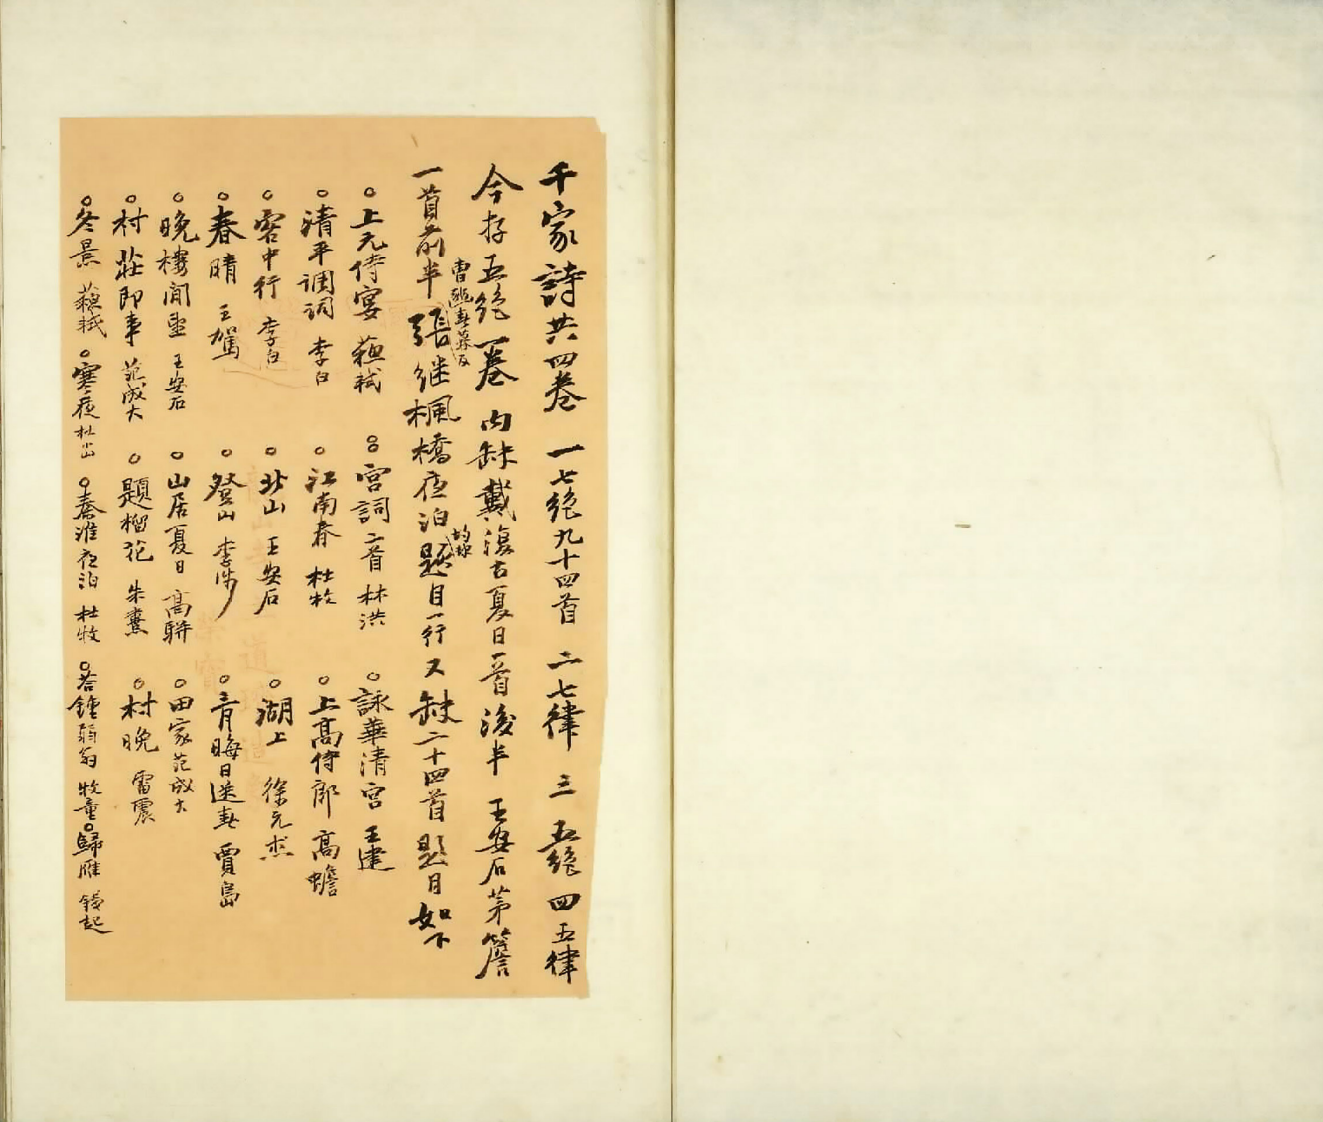 千家詩共四卷 一七絕九十四首 二七律 三五絕 四五律
今存五絕一卷 內缺戴復古夏日一首後半 王安石茅簷
一首前半 張継楓橋夜泊題目一行 又缺二十四首題目如下
上元侍宴 蘇軾 宮詞二首 林洪 詠華清宮 王建
清平調詞 李白 江南春 杜牧 上高侍郎 高蟾
客中行 李白 北山 王安石 湖上 徐元杰
春晴 王駕 登山 李涉 三月晦日送春 賈島
晚樓閒坐 王安石 山居夏日 高駢 田家 范成大
村莊即事 范成大 題榴花 朱熹 村晚 雷震
冬景 蘇軾 寒夜 杜耒 秦淮夜泊 杜牧 答鍾弱翁 牧童 歸雁 錢起